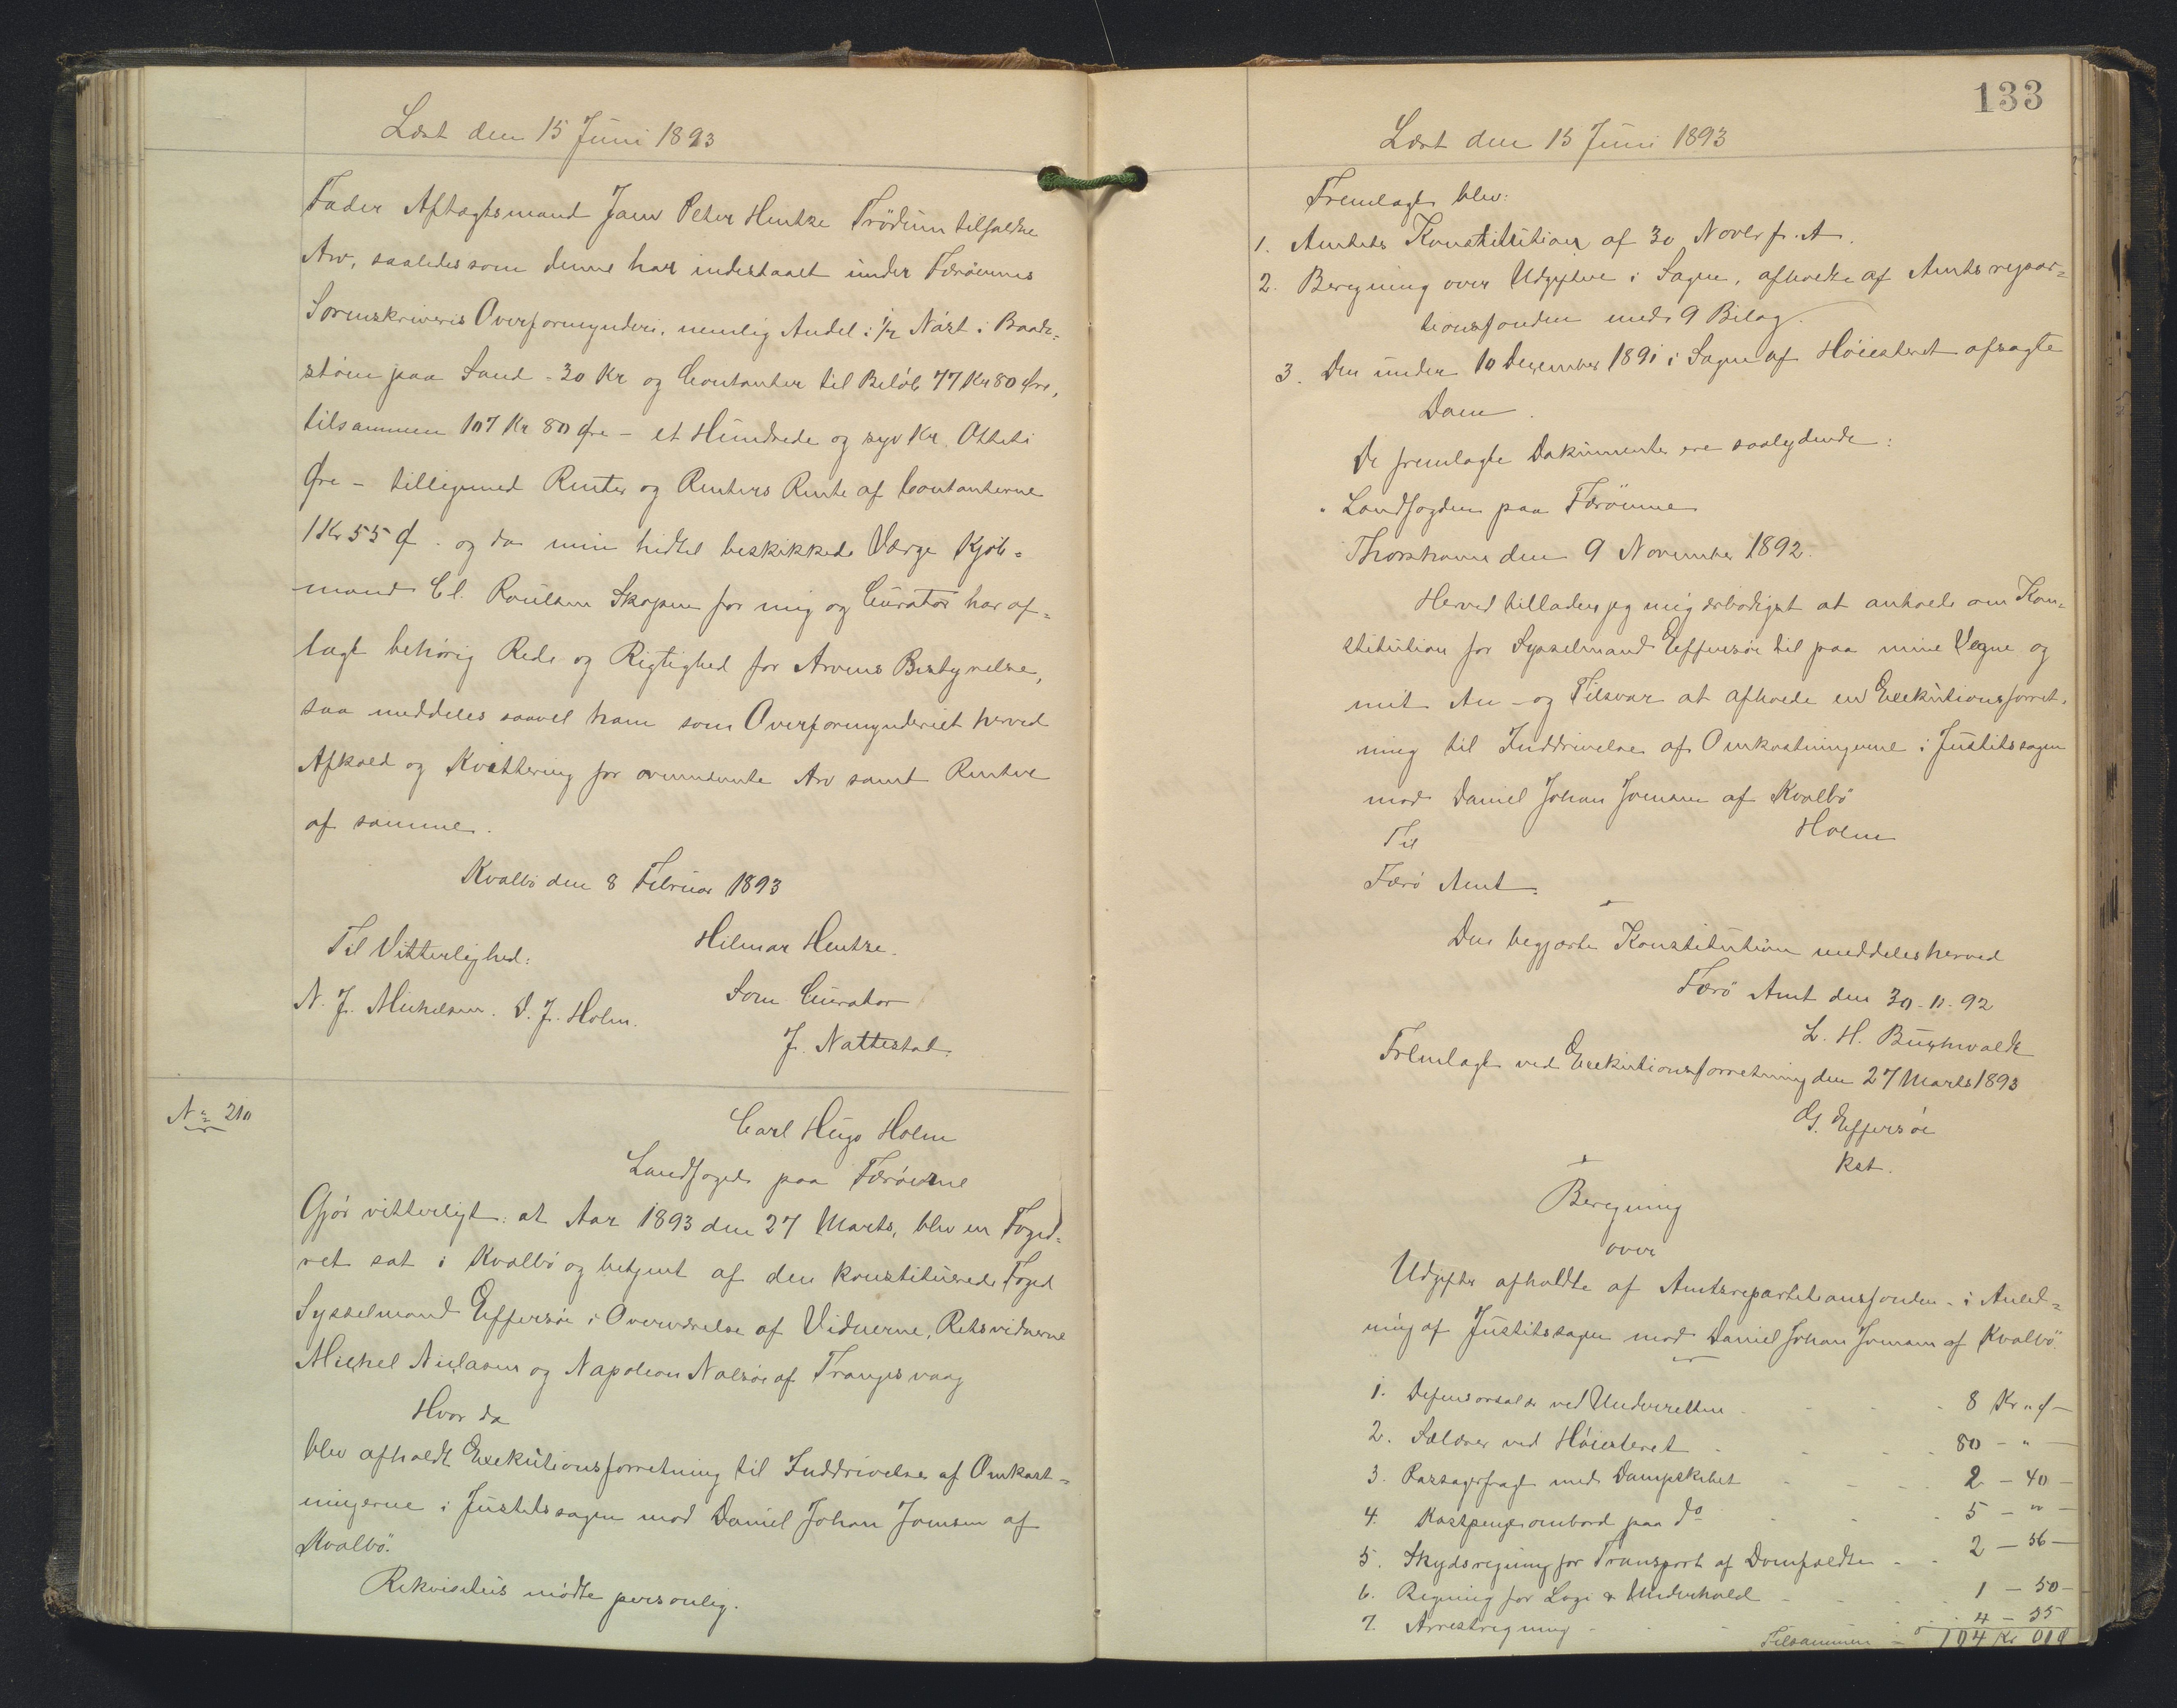 Læst den 15 Juni 1893
Fader Aftægtsmand Jans Peter Hentze Frödum tilfaldne
Arv, saaledes som denne har indestaaet under Færøernes
Sorenskriveris Overformynderi, nemlig Andel i 1/2 Nást i Baade-
støen paa Sand - 30 Kr og Contanter til Beløb 77 Kr 80 Øre,
tilsammen 107 Kr 80 Øre - et Hundrede og syv Kr Otteti
Øre - tilligemed Renter og Renters Rente af Contanterne
1 Kr 55 Ø - og da min hidtil beskikkede Værge Kjøb-
mand Cl. Poulsen Skopen for mig og Curator har af-
lagt behørig Rede og Rigtighed for Arvens Bestyrelse,
saa meddeles saavel ham som Overformynderiet herved
Afkald og Kvittering for ovennævnte Arv samt Renterne
af samme.
Kvalbö den 8 Februar 1893
Til Vitterlighed: Hilmar Hentze.
N. J. Michelsen. D. J. Holm. Som Curator
J. Nattestad.
No 210
Carl Hugo Holm
Landfoged paa Færøerne
Gjör vitterligt: at Aar 1893 den 27 Marts, blev en Foged-
ret sat i Kvalbö og betjent af den konstituerede Foged
Sysselmand Effersöe i Overværelse af Vidnerne, Retsvidnerne
Michel Niclasen og Napoleon Nolsöe af Trangisvaag
Hvor da
blev afholdt Exekutionsforretning til Inddrivelse af Omkost-
ningerne i Justitssagen mod Daniel Johan Joensen af
Kvalbö.
Rekvisitus mödte personlig.
133
Læst den 15 Juni 1893
Fremlagt blev:
1. Amtets Konstitution af 30 Novbr f. A.
2. Beregning over Udgifterne i Sagen, afholdte af Amtsrepar-
titionsfonden med 9 Bilag.
3. Den under 10 December 1891 i Sagen af Höiesteret afsagte
Dom.
De fremlagte Dokumenter ere saalydende:
Landfogden paa Færöerne
Thorshavn den 9 November 1892.
Herved tillader jeg mig ærbödigst at anholde om Kon-
stitution for Sysselmand Effersöe til paa mine Vegne og
mit An- og Tilsvar at afholde en Exekutionsforret-
ning til Inddrivelse af Omkostningerne i Justitssagen
mod Daniel Johan Joensen af Kvalbö
Til Holm
Færö Amt.
Den begjærte Konstitution meddeles herved
Færö Amt den 30-11-92
L. H. Buchwaldt
Fremlagt ved Exekutionsforretning den 27 Marts 1893
G. Effersöe
kst.
Beregning
over
Udgifter afholdte af Amtsrepartitionsfonden - i Anled-
ning af Justitssagen mod Daniel Johan Joensen af Kvalbö.
1. Defensorsalær ved Underretten - 8 Kr " Ø -
2. Salærer ved Höiesteret - 80 - " -
3. Passagerfragt med Dampskibet - 2 - 40 -
4. Kostpenge ombord paa do - 5 - " -
5. Skydsregning for Transport af Domfældte - 2 - 56 -
6. Regning for Logi & Underhold - 1 - 50 -
7. Arrestregning - 4 - 55
Tilsammen - 104 Kr 01 Ø